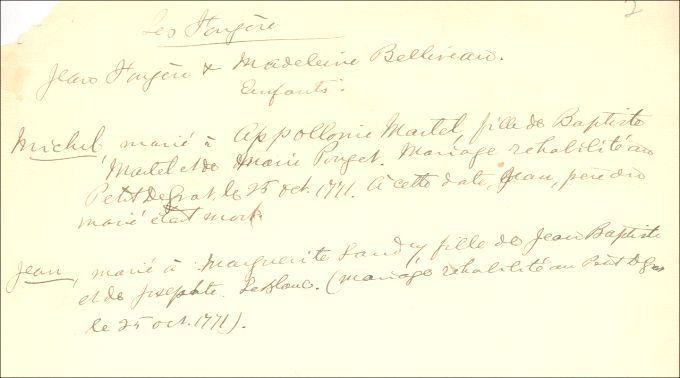 2
Les Fougère
Jean Fougère & Madeleine Belliveau.
Enfants:
Michel, marié à Appollonie Martel, fille de Baptiste
Martel et de Marie Pouget. Mariage rehabilité au
Petit DeGrat, le 25 oct. 1771. À cette date, Jean, père du
marié était mort
Jean, marié à Marguerite Landry, fille de Jean Baptiste
et de Josephte LeBlanc. (mariage rehabilité au Petit DeGrat
le 25 oct. 1771).